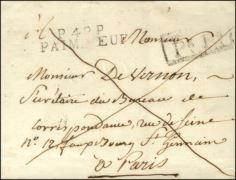 P.42.P
PAIMBŒUF
Monsieur
Monsieur De Vernon,
Secrétaire du Bureau de
correspondance, rue de Seine
N.º 12 fauxbourg St. Germain
à Paris